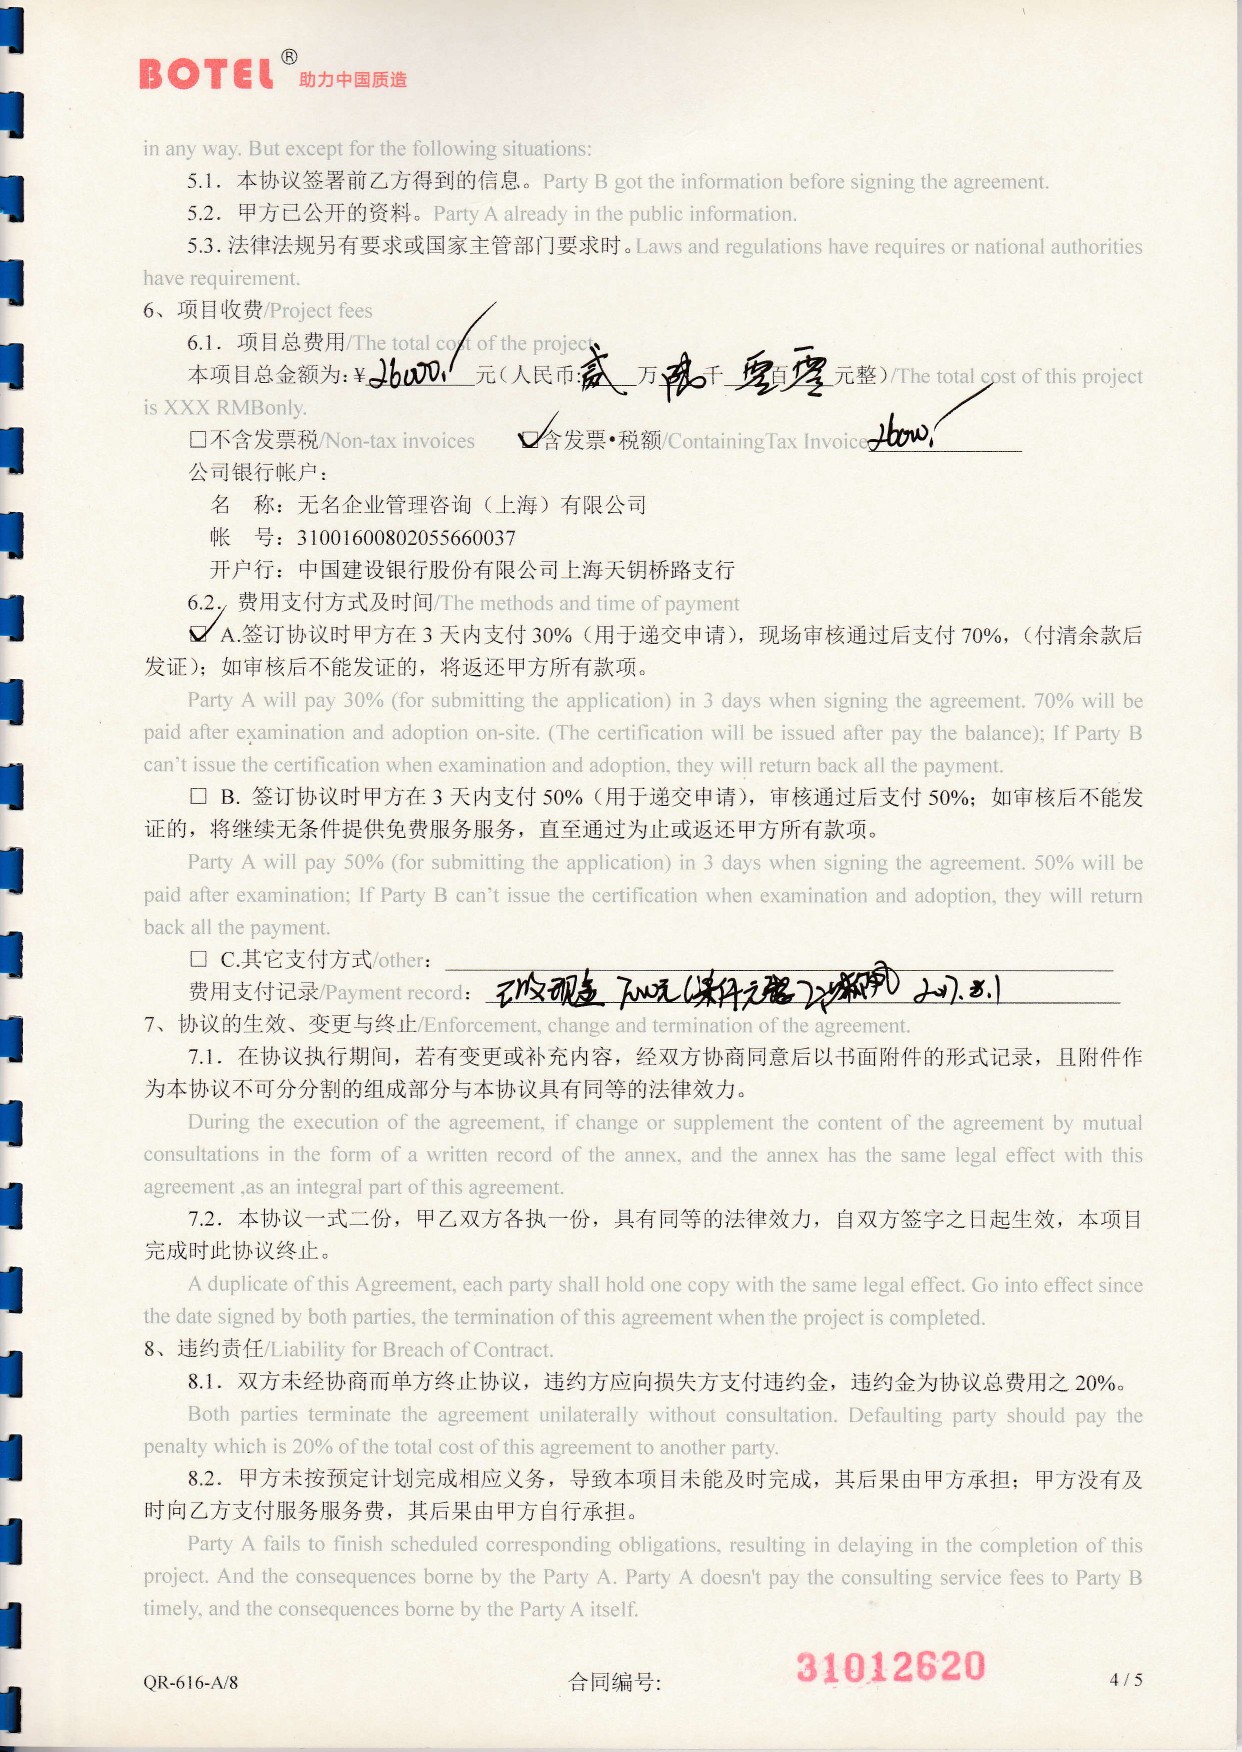 BOTEL® 助力中国质造
in any way. But except for the following situations:
5.1．本协议签署前乙方得到的信息。Party B got the information before signing the agreement.
5.2．甲方已公开的资料。Party A already in the public information.
5.3. 法律法规另有要求或国家主管部门要求时。Laws and regulations have requires or national authorities
have requirement.
6、项目收费/Project fees
6.1．项目总费用/The total cost of the project
本项目总金额为:¥ 26000. 元(人民币: 贰 万 陆 千 零 百 零 元整)/The total cost of this project
is XXX RMBonly.
□不含发票税/Non-tax invoices ☑含发票•税额/ContainingTax Invoice 26000.
公司银行帐户：
名 称：无名企业管理咨询（上海）有限公司
帐 号：31001600802055660037
开户行：中国建设银行股份有限公司上海天钥桥路支行
6.2．费用支付方式及时间/The methods and time of payment
☑ A.签订协议时甲方在 3 天内支付 30%（用于递交申请），现场审核通过后支付 70%，（付清余款后
发证）；如审核后不能发证的，将返还甲方所有款项。
Party A will pay 30% (for submitting the application) in 3 days when signing the agreement. 70% will be
paid after examination and adoption on-site. (The certification will be issued after pay the balance); If Party B
can't issue the certification when examination and adoption, they will return back all the payment.
□ B. 签订协议时甲方在 3 天内支付 50%（用于递交申请），审核通过后支付 50%；如审核后不能发
证的，将继续无条件提供免费服务服务，直至通过为止或返还甲方所有款项。
Party A will pay 50% (for submitting the application) in 3 days when signing the agreement. 50% will be
paid after examination; If Party B can't issue the certification when examination and adoption, they will return
back all the payment.
□ C.其它支付方式/other：
费用支付记录/Payment record： 已收现金 7000元 2017.8.1
7、协议的生效、变更与终止/Enforcement, change and termination of the agreement.
7.1．在协议执行期间，若有变更或补充内容，经双方协商同意后以书面附件的形式记录，且附件作
为本协议不可分分割的组成部分与本协议具有同等的法律效力。
During the execution of the agreement, if change or supplement the content of the agreement by mutual
consultations in the form of a written record of the annex, and the annex has the same legal effect with this
agreement ,as an integral part of this agreement.
7.2．本协议一式二份，甲乙双方各执一份，具有同等的法律效力，自双方签字之日起生效，本项目
完成时此协议终止。
A duplicate of this Agreement, each party shall hold one copy with the same legal effect. Go into effect since
the date signed by both parties, the termination of this agreement when the project is completed.
8、违约责任/Liability for Breach of Contract.
8.1．双方未经协商而单方终止协议，违约方应向损失方支付违约金，违约金为协议总费用之 20%。
Both parties terminate the agreement unilaterally without consultation. Defaulting party should pay the
penalty which is 20% of the total cost of this agreement to another party.
8.2．甲方未按预定计划完成相应义务，导致本项目未能及时完成，其后果由甲方承担；甲方没有及
时向乙方支付服务服务费，其后果由甲方自行承担。
Party A fails to finish scheduled corresponding obligations, resulting in delaying in the completion of this
project. And the consequences borne by the Party A. Party A doesn't pay the consulting service fees to Party B
timely, and the consequences borne by the Party A itself.
QR-616-A/8 合同编号: 31012620 4 / 5